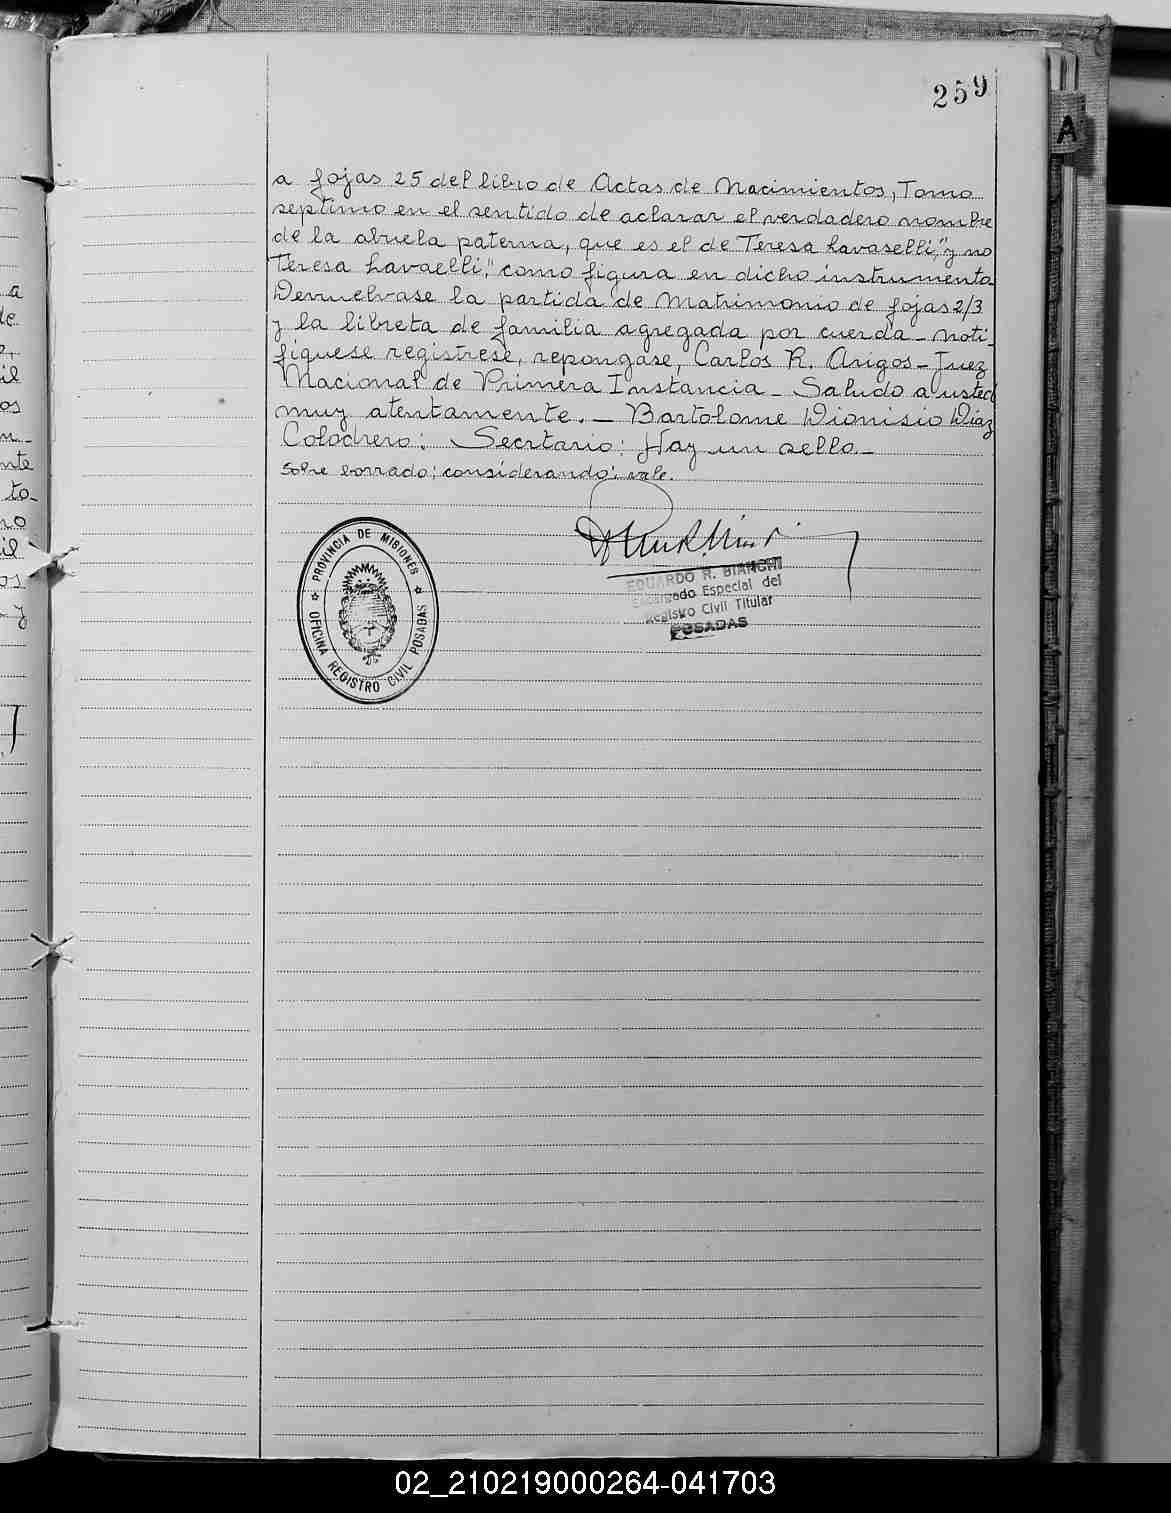 259
A
a fojas 25 del libro de Actas de Nacimientos, Tomo
septimo en el sentido de aclarar el verdadero nombre
de la abuela paterna, que es el de Teresa Lavaselli," y no
Teresa Lavaelli," como figura en dicho instrumento.
Devuelvase la partida de Matrimonio de fojas 2/3
y la libreta de familia agregada por cuerda - noti_
fiquese registrese, repongase, Carlos R. Arigos - Juez
Nacional de Primera Instancia - Saludo a usted
muy atentamente. - Bartolome Dionisio Diaz
Colodrero: Secrtario: Hay un sello. -
Sobre borrado; considerando: vale.
PROVINCIA DE MISIONES
OFICINA REGISTRO CIVIL POSADAS
EDUARDO R. BIANCHI
Encargado Especial del
Registro Civil Titular
POSADAS
a
de
il
os
nte
to-
no
il
os-
y
02_210219000264-041703